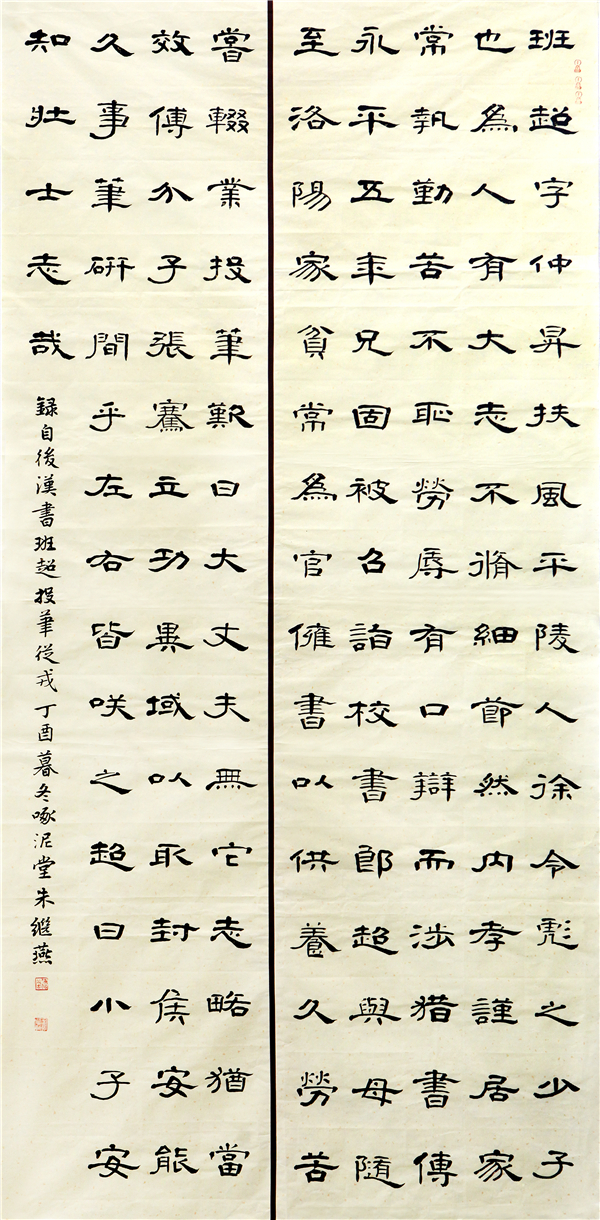 班超字仲昇扶風平陵人徐令彪之少子
也為人有大志不脩細節然内孝謹居家
常執勤苦不恥勞辱有口辯而涉猎書傳
永平五年兄固被召詣校書郎超與母隨
至洛陽家貧常為官傭書以供養久勞苦
嘗輟業投筆歎曰大丈夫無它志略猶當
效傅介子張騫立功異域以取封侯安能
久事筆研間乎左右皆咲之超曰小子安
知壯士志哉
録自後漢書班超投筆從戎丁酉暮冬啄泥堂朱繼燕